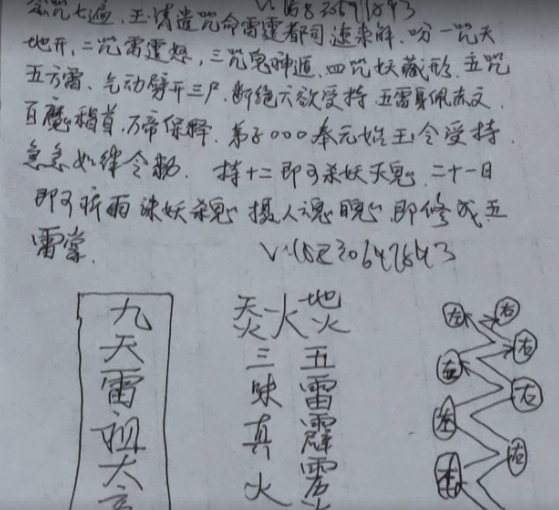 念咒七遍,玉清造咒命雷霆都司速来解.吩一咒天
地开,二咒雷霆怒,三咒鬼神遁.四咒妖藏形.五咒
五方雷.气动劈开三尸.断绝六欲受持.五雷身佩赤文.
百魔稽首,万帝保释.弟子000奉元始玉令受持.
急急如律令勅. 持十二即可杀妖灭鬼.二十一日
即可祈雨 诛妖杀鬼 摄人魂 即修成五
雷掌. V:18230647843
九天雷祖大
天火 火 地火
三昧真火
五雷霹雳
左 右
左 右
左 右
左 右